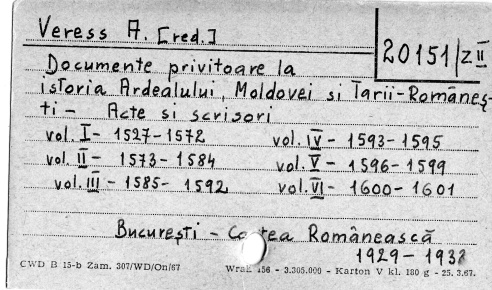 Veress A. [red.]
20151/z II
Documente privitoare la
istoria Ardealului, Moldovei si Tarii-Româneş-
ti - Acte si scrisori
vol. I - 1527-1572 vol. IV - 1593-1595
vol. II - 1573-1584 vol. V - 1596-1599
vol. III - 1585-1592 vol. VI - 1600-1601
Bucureşti - Cartea Românească
1929-1938
CWD B 15-b Zam. 307/WD/On/67 156 - 3.305.000 - Karton V kl. 180 g - 25.3.67.